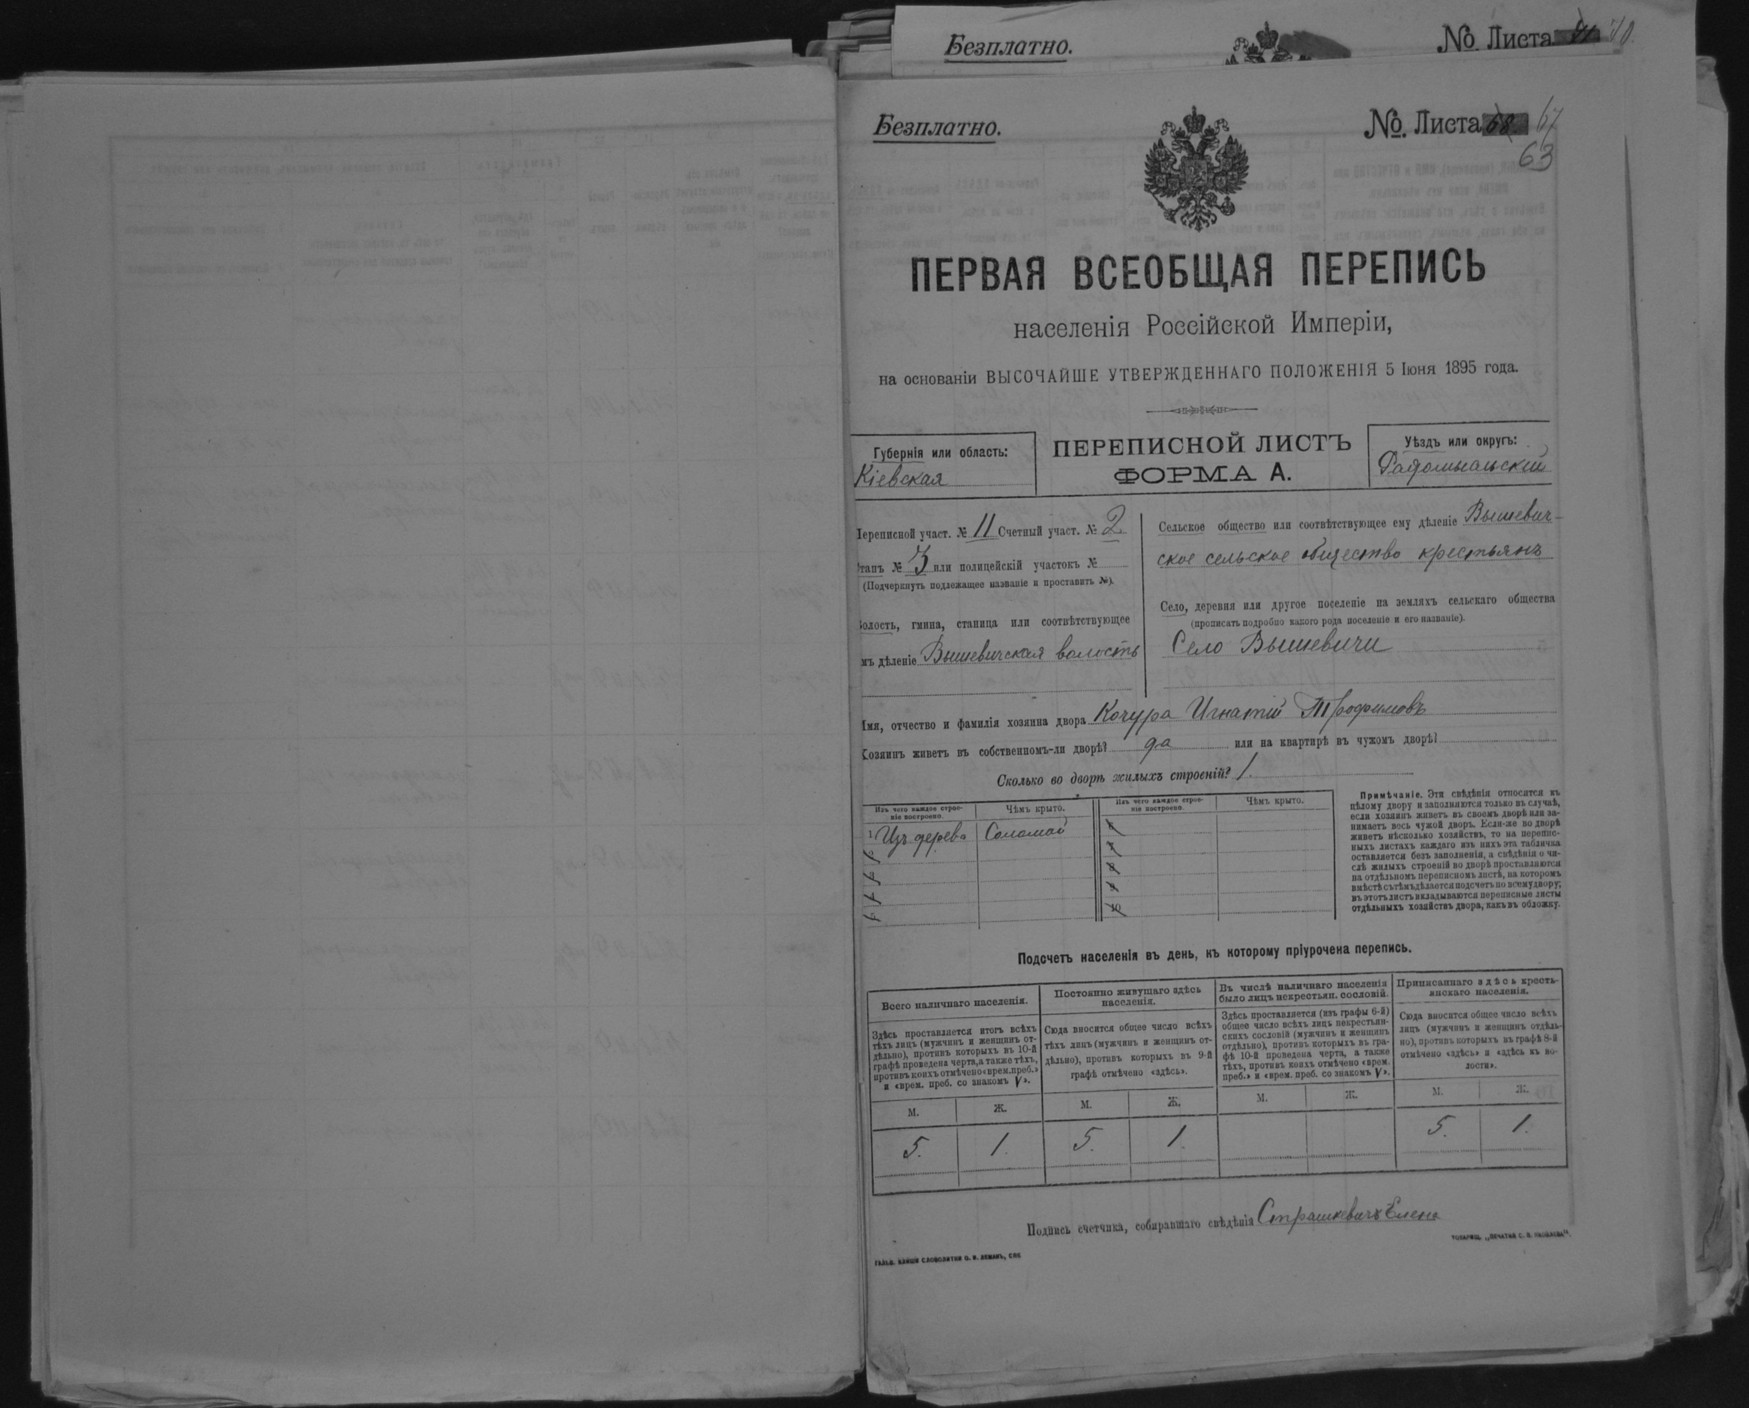 Безплатно.
№ Листа 40.
Безплатно.
№ Листа 68 67
63
ПЕРВАЯ ВСЕОБЩАЯ ПЕРЕПИСЬ
населенія Россійской Имперіи,
на основаніи ВЫСОЧАЙШЕ УТВЕРЖДЕННАГО ПОЛОЖЕНІЯ 5 Іюня 1895 года.
Губернія или область:
Кіевская
ПЕРЕПИСНОЙ ЛИСТЪ
ФОРМА А.
Уѣздъ или округъ:
Радомысльскій
Переписной участ. № 11 Счетный участ. № 2
Этапъ № 3 или полицейскій участокъ №
(Подчеркнуть подлежащее названіе и проставить №).
Волость, гмина, станица или соотвѣтствующее
имъ дѣленіе Вышевичская волость
Сельское общество или соотвѣтствующее ему дѣленіе Вышевич-
ское сельское общество крестьянъ
Село, деревня или другое поселеніе на земляхъ сельскаго общества
(прописать подробно какого рода поселеніе и его названіе).
Село Вышевичи
Имя, отчество и фамилія хозяина двора Кочура Игнатій Трофимовъ
Хозяинъ живетъ въ собственномъ-ли дворѣ? да или на квартирѣ въ чужомъ дворѣ?
Сколько во дворѣ жилыхъ строеній? 1.
Изъ чего каждое строе-
ніе построено.
Чѣмъ крыто.
Изъ чего каждое строе-
ніе построено.
Чѣмъ крыто.
1 Изъ дерева Соломой
Примѣчаніе. Эти свѣдѣнія относятся къ
цѣлому двору и заполняются только въ случаѣ,
если хозяинъ живетъ въ своемъ дворѣ или за-
нимаетъ весь чужой дворъ. Если-же во дворѣ
живетъ нѣсколько хозяйствъ, то на перепис-
ныхъ листахъ каждаго изъ нихъ эта табличка
оставляется безъ заполненія, а свѣдѣнія о чи-
слѣ жилыхъ строеній во дворѣ проставляются
на отдѣльномъ переписномъ листѣ, на которомъ
вмѣстѣ съ тѣмъ дѣлается подсчетъ по всему двору;
въ этотъ листъ вкладываются переписные листы
отдѣльныхъ хозяйствъ двора, какъ въ обложку.
Подсчетъ населенія въ день, къ которому пріурочена перепись.
Всего наличнаго населенія.
Здѣсь проставляется итогъ всѣхъ
тѣхъ лицъ (мужчинъ и женщинъ от-
дѣльно), противъ которыхъ въ 10-й
графѣ проведена черта, а также тѣхъ,
противъ коихъ отмѣчено «врем. преб.»
и «врем. преб. со знакомъ V».
Постоянно живущаго здѣсь
населенія.
Сюда вносится общее число всѣхъ
тѣхъ лицъ (мужчинъ и женщинъ от-
дѣльно), противъ которыхъ въ 9-й
графѣ отмѣчено «здѣсь».
Въ числѣ наличнаго населенія
было лицъ некрестьян. сословій.
Здѣсь проставляется (изъ графы 6-й)
общее число всѣхъ лицъ некрестьян-
скихъ сословій (мужчинъ и женщинъ
отдѣльно), противъ которыхъ въ гра-
фѣ 10-й проведена черта, а также
тѣхъ, противъ коихъ отмѣчено «врем.
преб.» и «врем. преб. со знакомъ V».
Приписаннаго здѣсь кресть-
янскаго населенія.
Сюда вносится общее число всѣхъ
лицъ (мужчинъ и женщинъ отдѣль-
но), противъ которыхъ въ графѣ 8-й
отмѣчено «здѣсь» и «здѣсь къ во-
лости».
М. Ж. М. Ж. М. Ж. М. Ж.
5. 1. 5. 1. 5. 1.
Подпись счетчика, собиравшаго свѣдѣнія Страшкевичъ Елена